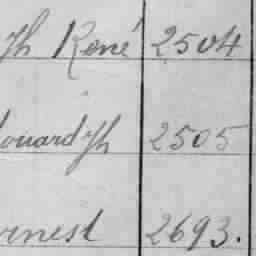 Jh René 2504
douard Jh 2505
rnest 2693.